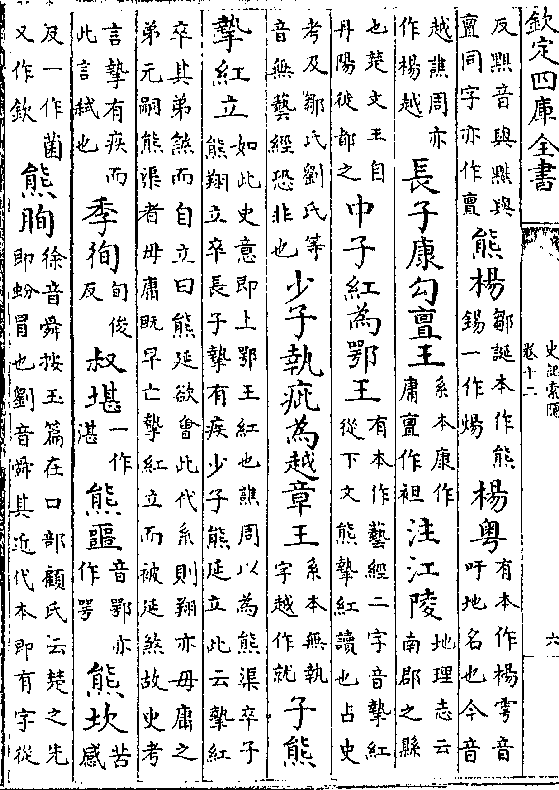 欽定四庫全書
史記索隱
卷十二
六
反㸃音與㸃與
亶同字亦作亶
熊楊
鄒誕本作熊
錫一作煬
楊粤
有本作楊雩音
吁地名也今音
越譙周亦
作楊越
長子康勾亶王
系本康作
庸亶作袒
注江陵
地理志云
南郡之縣
也楚文王自
丹陽徙都之
巾子紅為鄂王
有本作藝經二字音摯紅
從下文熊摯紅讀也占史
考及鄒氏劉氏等
音無藝經恐非也
少子執疵為越章王
系本無執
字越作就
子熊
摯紅立
如此史意即上鄂王紅也譙周以為熊渠卒子
熊翔立卒長子摯有疾少子熊延立此云摯紅
卒其弟煞而自立曰熊延欲會此代系則翔亦毋庸之
弟元嗣熊渠者毋庸既早亡摯紅立而被延煞故史考
言摯有疾而
此言弑也
季徇
旬俊
反
叔堪
一作
湛
熊噩
音鄂亦
作咢
熊坎
苦
感
反一作菌
又作欽
熊眴
徐音舜按玉篇在口部顧氏云楚之先
即蚡冒也劉音舜其近代本即有字從